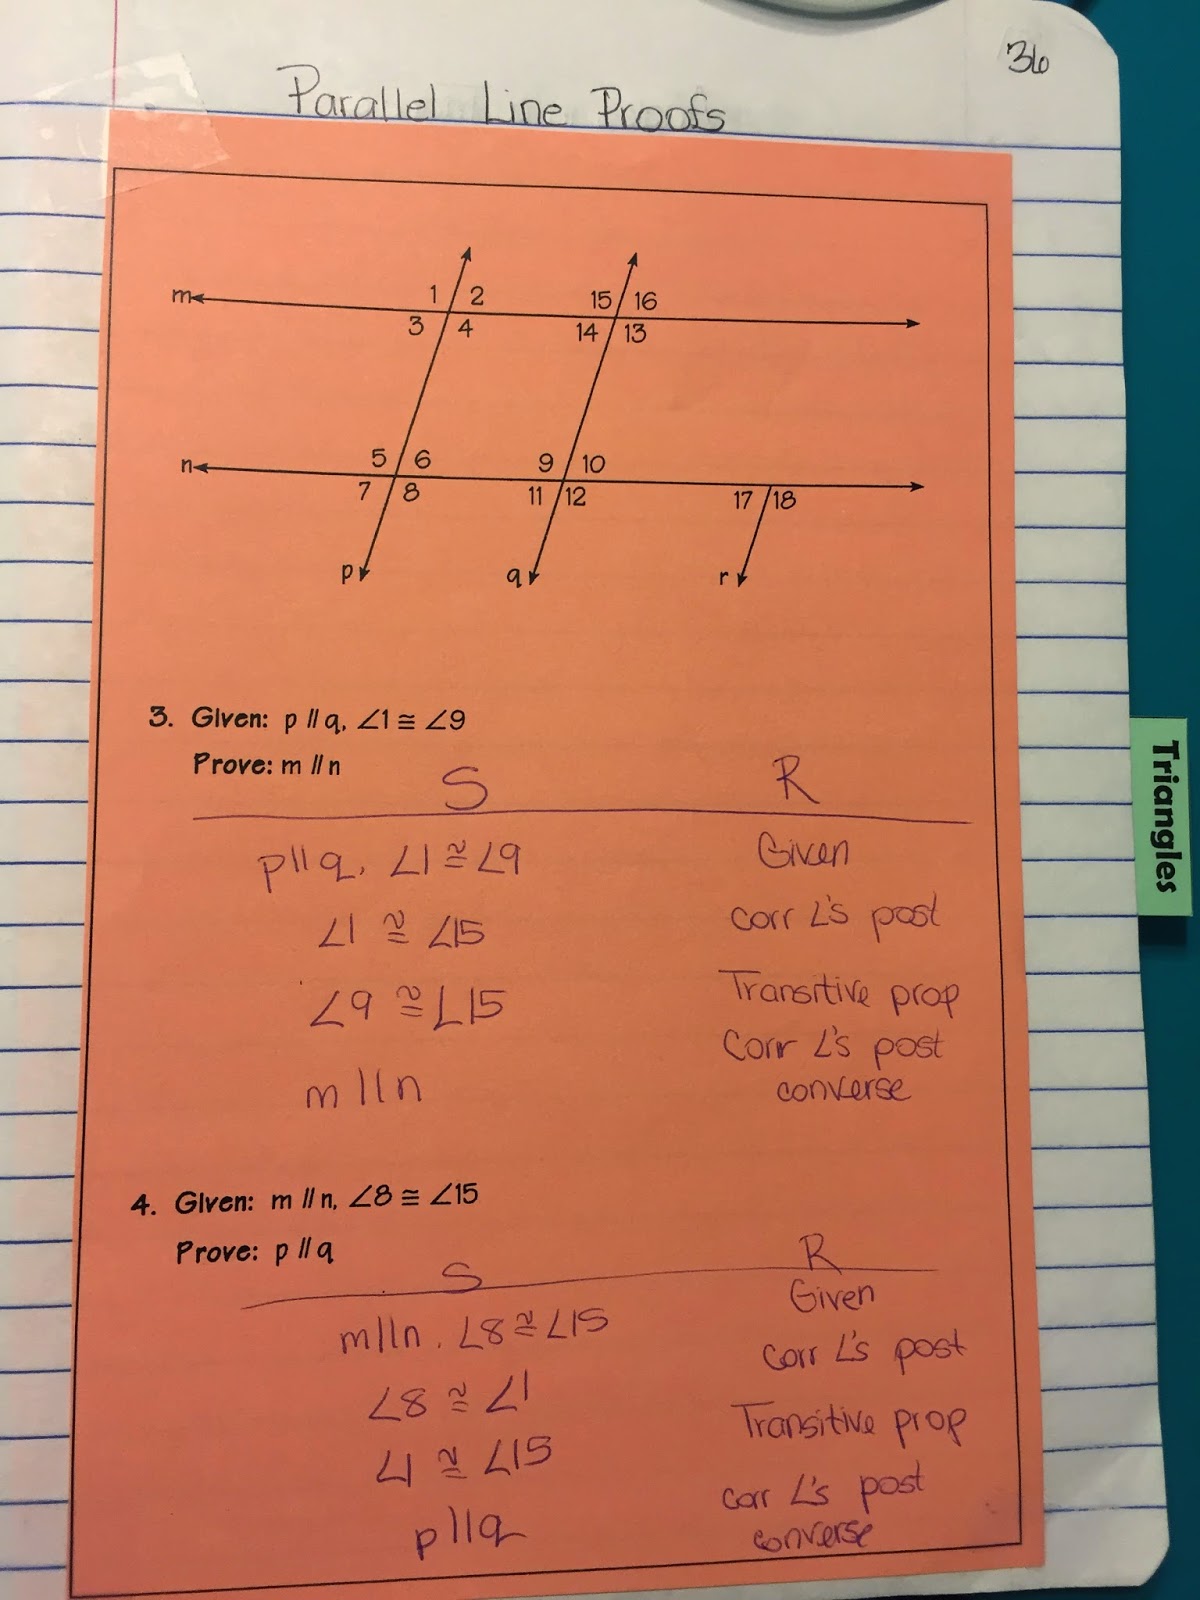 36
Parallel Line Proofs
m
1 2
15 16
3 4
14 13
n
5 6
9 10
7 8
11 12
17 18
p
q
r
3. Given: p // q, ∠1 ≅ ∠9
Prove: m // n
S R
p||q, ∠1 ≅ ∠9 Given
∠1 ≅ ∠15 corr ∠'s post
∠9 ≅ ∠15 Transitive prop
m||n Corr ∠'s post
converse
4. Given: m // n, ∠8 ≅ ∠15
Prove: p // q
S R
m||n, ∠8 ≅ ∠15 Given
∠8 ≅ ∠1 corr ∠'s post
∠1 ≅ ∠15 Transitive prop
p||q corr ∠'s post
converse
Triangles